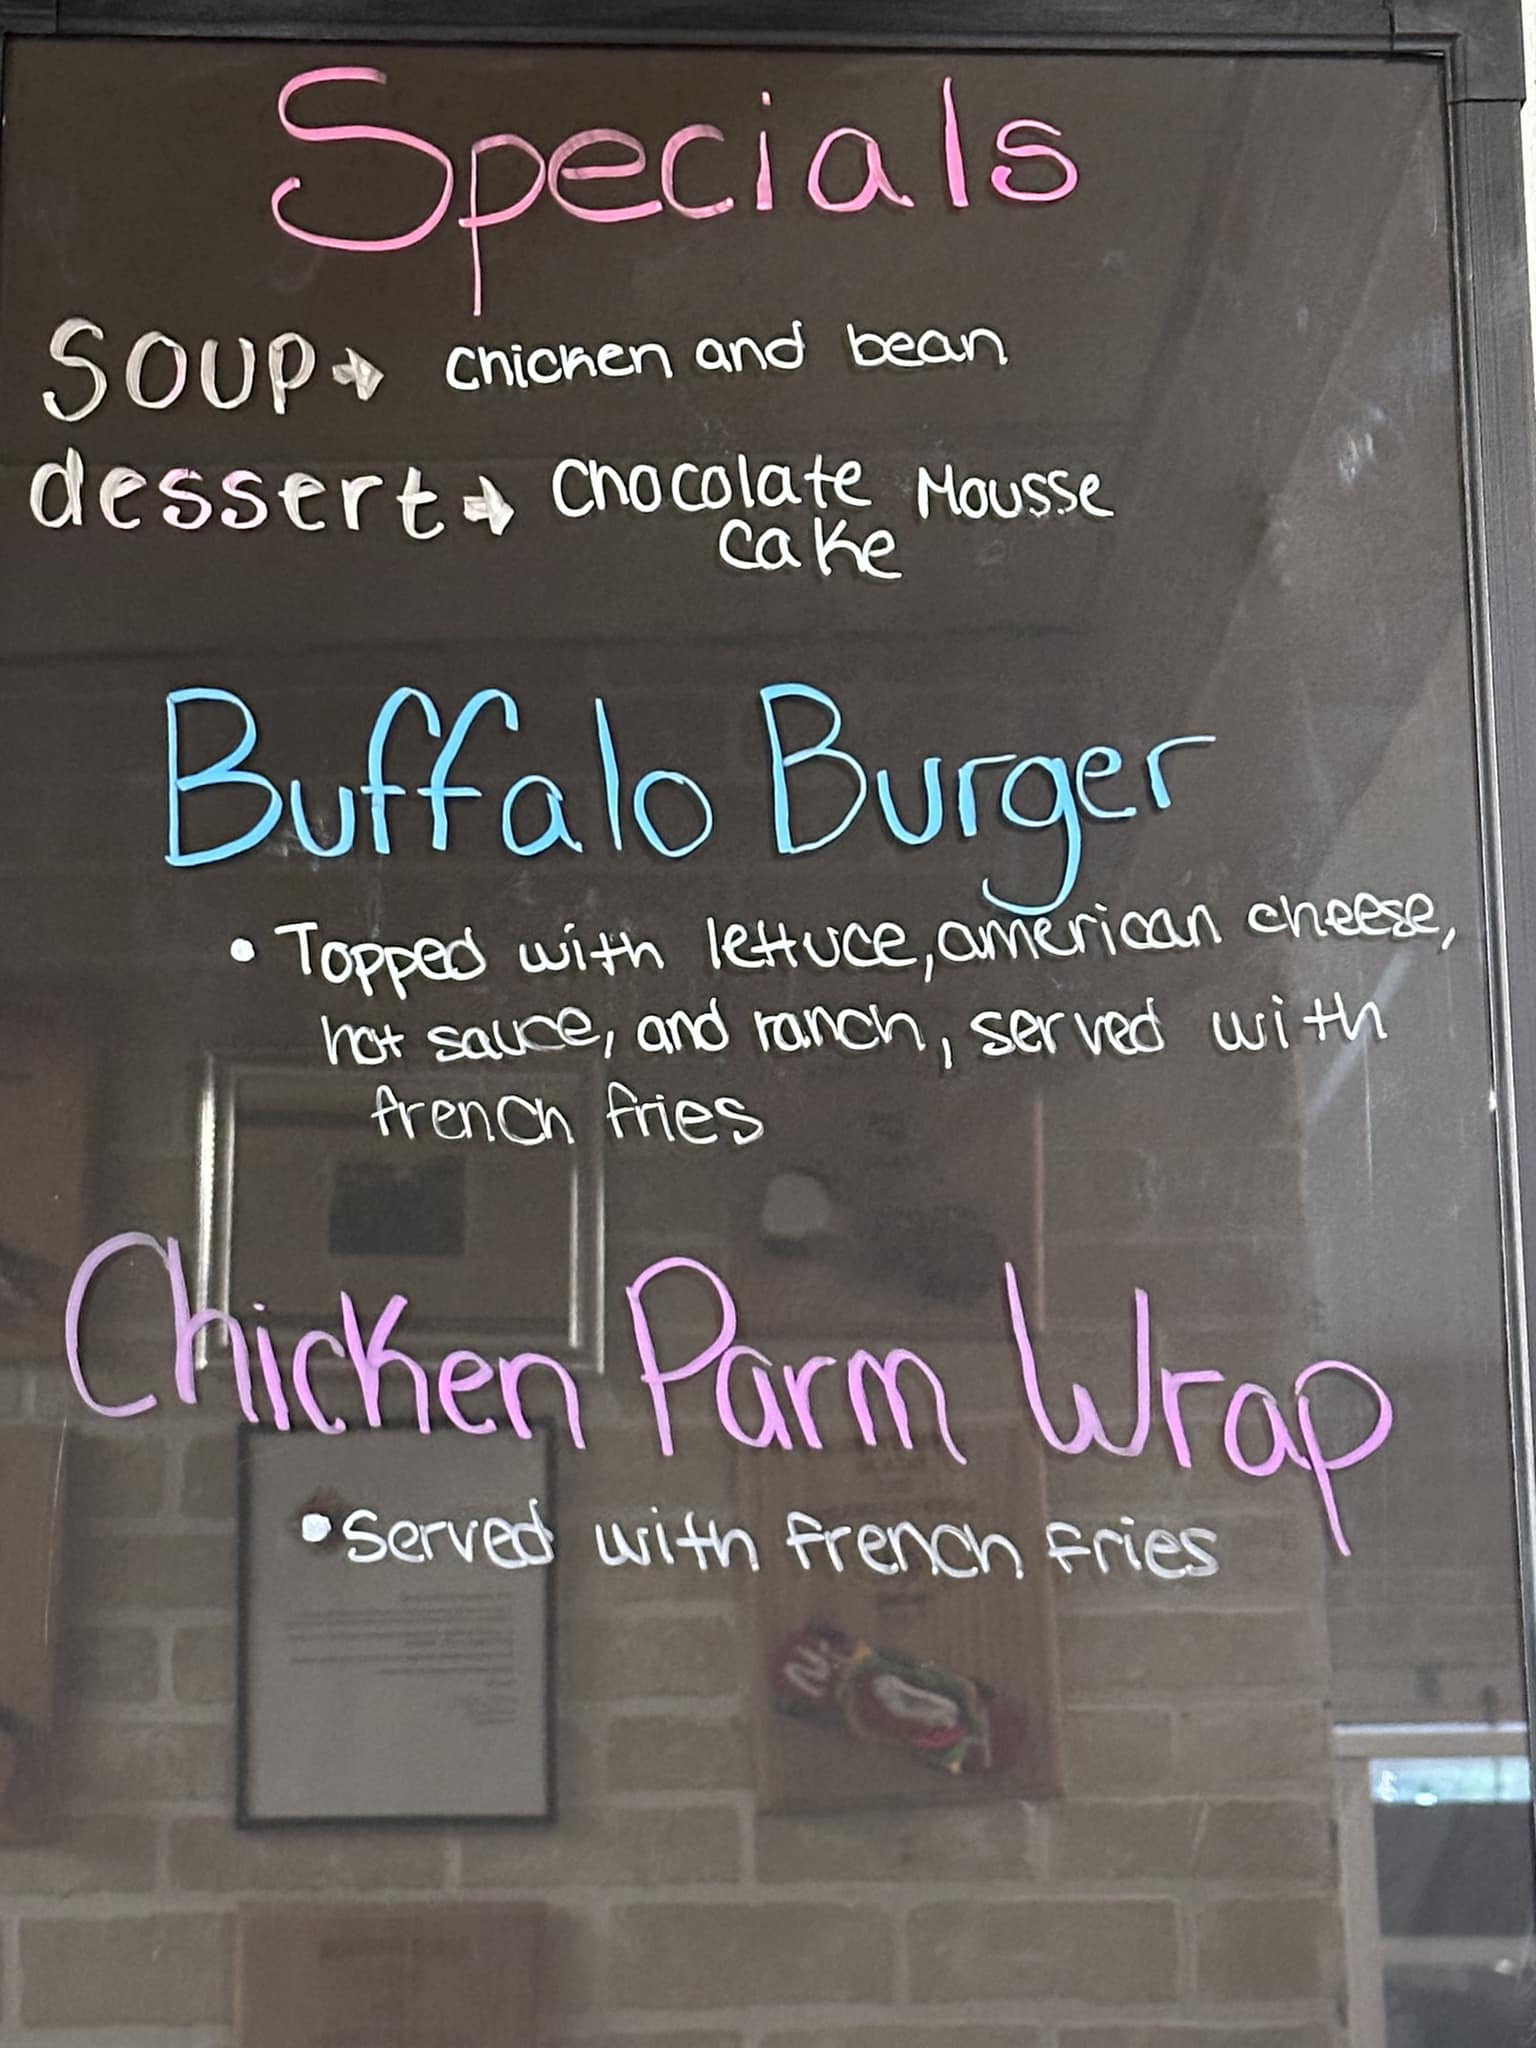 Specials
SOUP→ chicken and bean
dessert→ Chocolate Mousse
cake
Buffalo Burger
• Topped with lettuce, american cheese,
hot sauce, and ranch, served with
french fries
Chicken Parm Wrap
• served with french fries